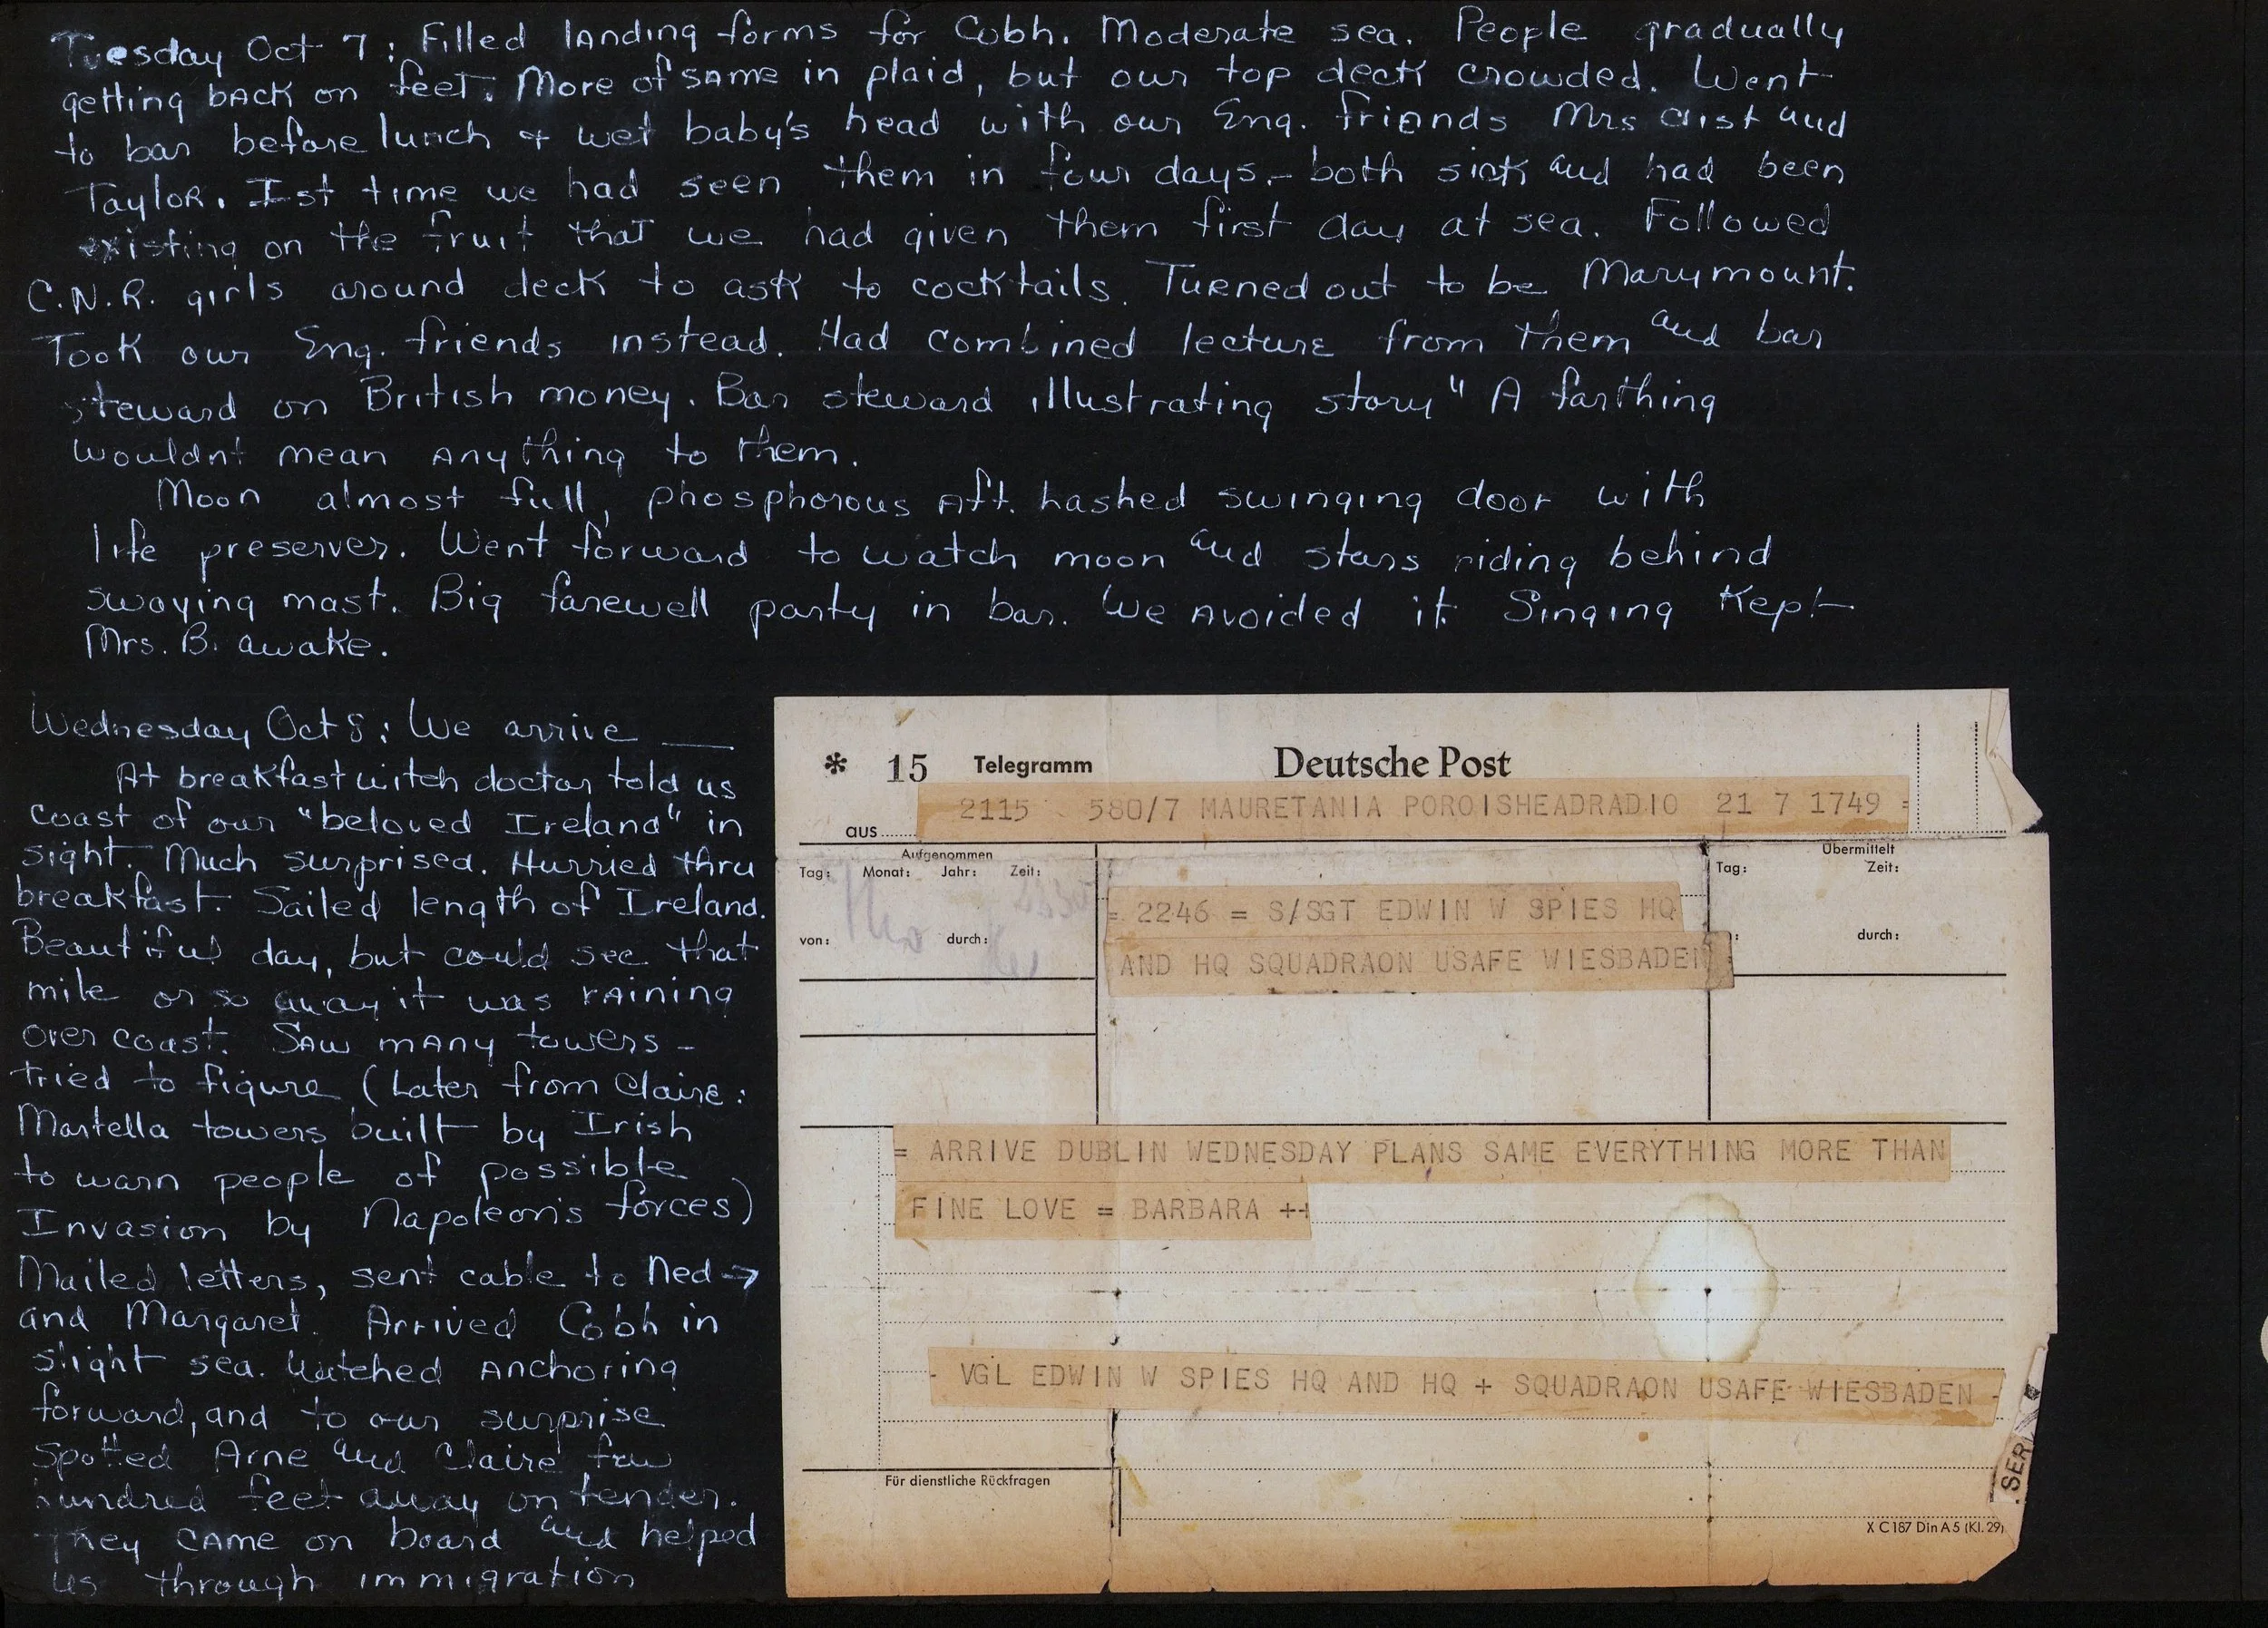 Tuesday Oct 7: Filled landing forms for Cobh. Moderate sea. People gradually
getting back on feet. More of same in plaid, but our top deck crowded. Went
to bar before lunch & wet baby's head with our Eng. friends Mrs and
Taylor. Ist time we had seen them in four days.- both sick and had been
existing on the fruit that we had given them first day at sea. Followed
C.N.R. girls around deck to ask to cocktails. Turned out to be Marymount.
Took our Eng. friends instead. Had combined lecture from them and bar
steward on British money. Bar steward illustrating story " A farthing
wouldnt mean anything to them.
Moon almost full, phosphorous aft. hashed swinging door with
life preserver. Went forward to watch moon and stars riding behind
swaying mast. Big farewell party in bar. We avoided it. Singing kept
Mrs. B. awake.
Wednesday Oct 8: We arrive __
At breakfast witch doctor told us
coast of our "beloved Ireland" in
sight. Much surprised. Hurried thru
breakfast. Sailed length of Ireland.
Beautiful day, but could see that
mile or so away it was raining
over coast. Saw many towers -
tried to figure (Later from Claire:
Martella towers built by Irish
to warn people of possible
Invasion by Napoleon's forces)
Mailed letters, sent cable to Ned →
and Margaret. Arrived Cobh in
slight sea. Watched anchoring
forward, and to our surprise
spotted Arne and Claire few
hundred feet away on tender.
They came on board and helped
us through immigration
* 15 Telegramm Deutsche Post
2115 580/7 MAURETANIA POROISHEADRADIO 21 7 1749 =
aus
Aufgenommen Übermittelt
Tag: Monat: Jahr: Zeit: Tag: Zeit:
= 2246 = S/SGT EDWIN W SPIES HQ
von: durch: durch:
AND HQ SQUADRAON USAFE WIESBADEN =
= ARRIVE DUBLIN WEDNESDAY PLANS SAME EVERYTHING MORE THAN
FINE LOVE = BARBARA ++
- VGL EDWIN W SPIES HQ AND HQ + SQUADRAON USAFE WIESBADEN -
Für dienstliche Rückfragen
SER
X C187 Din A5 (Kl. 29)